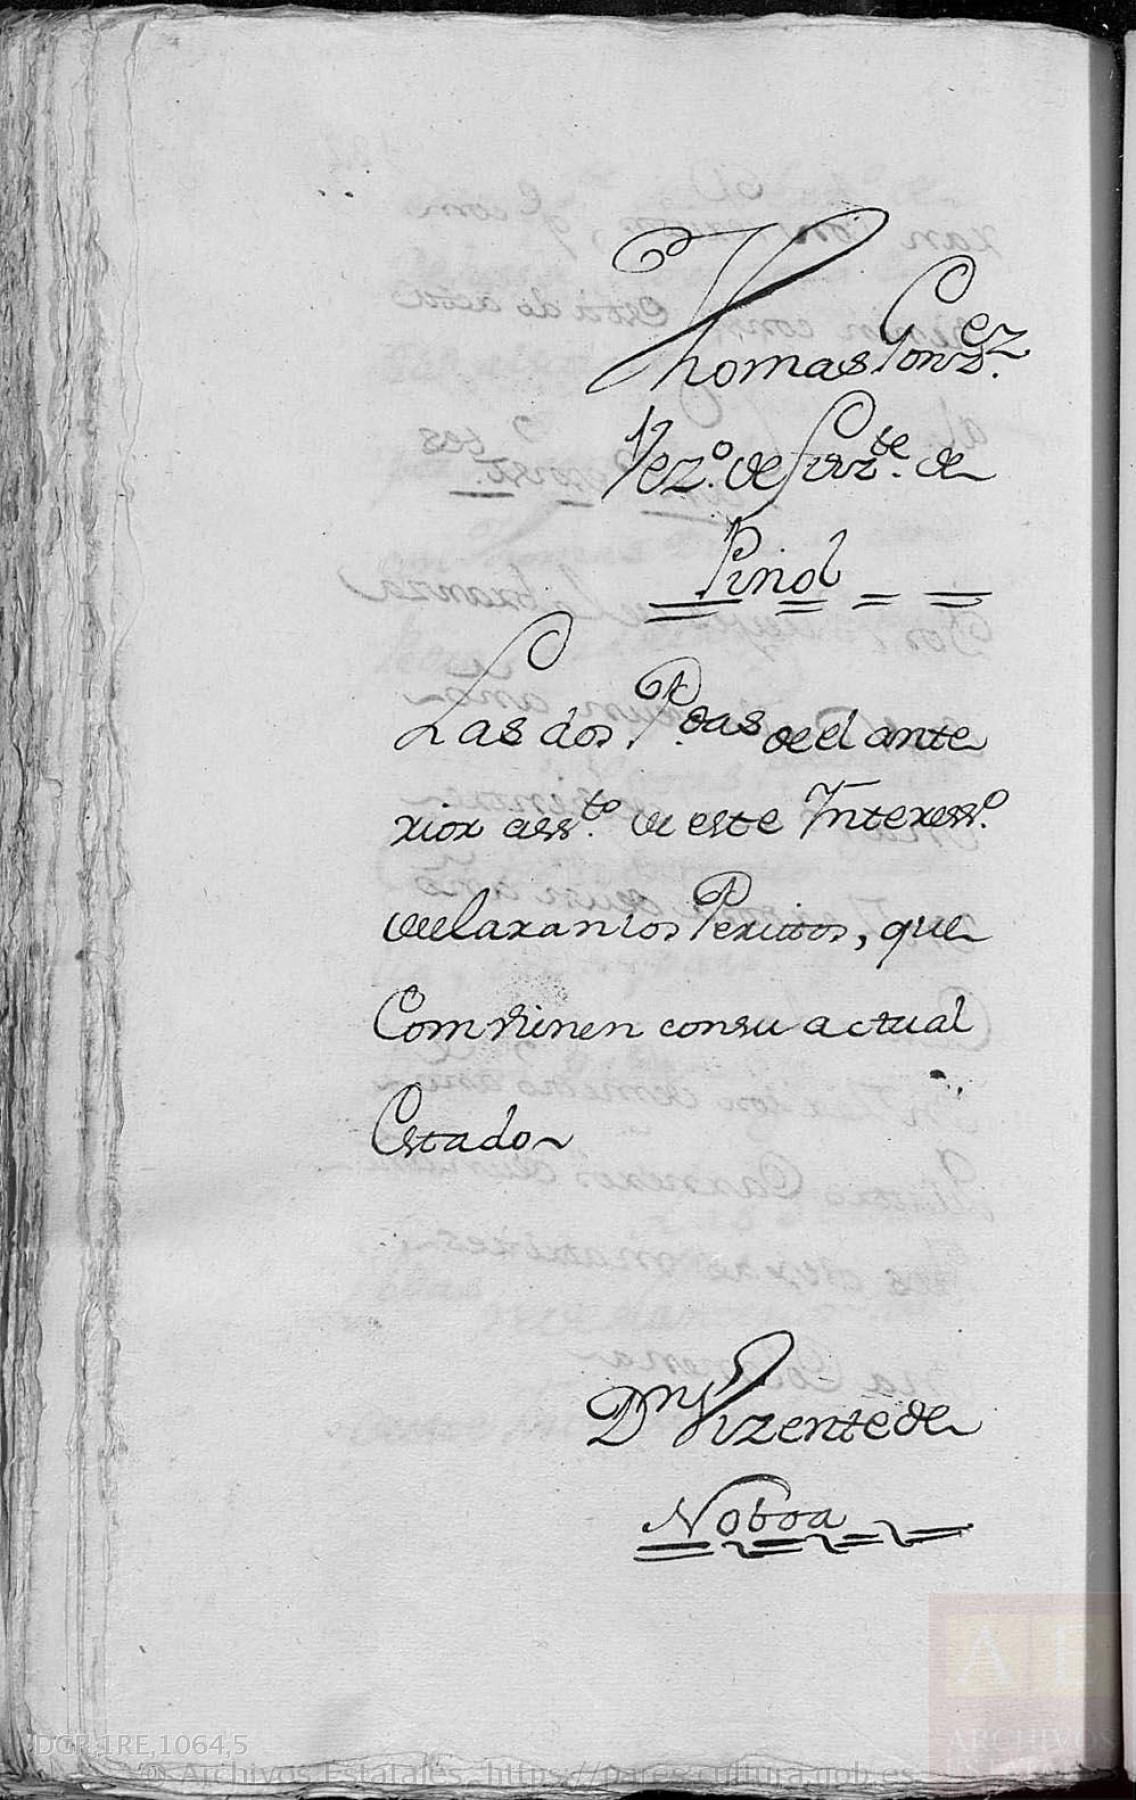 Thomas Gonz.ez
Vez.o de fuz.te de
Pinol
Las dos P.das de el ante
rior ass.to de este Interess.o
declaran los Peritos, que
Combienen con su actual
Estado
Dn Vizente de
Noboa
DGR,1RE,1064,5
© Archivos Estatales, https://pares.cultura.gob.es
AE
ARCHIVOS